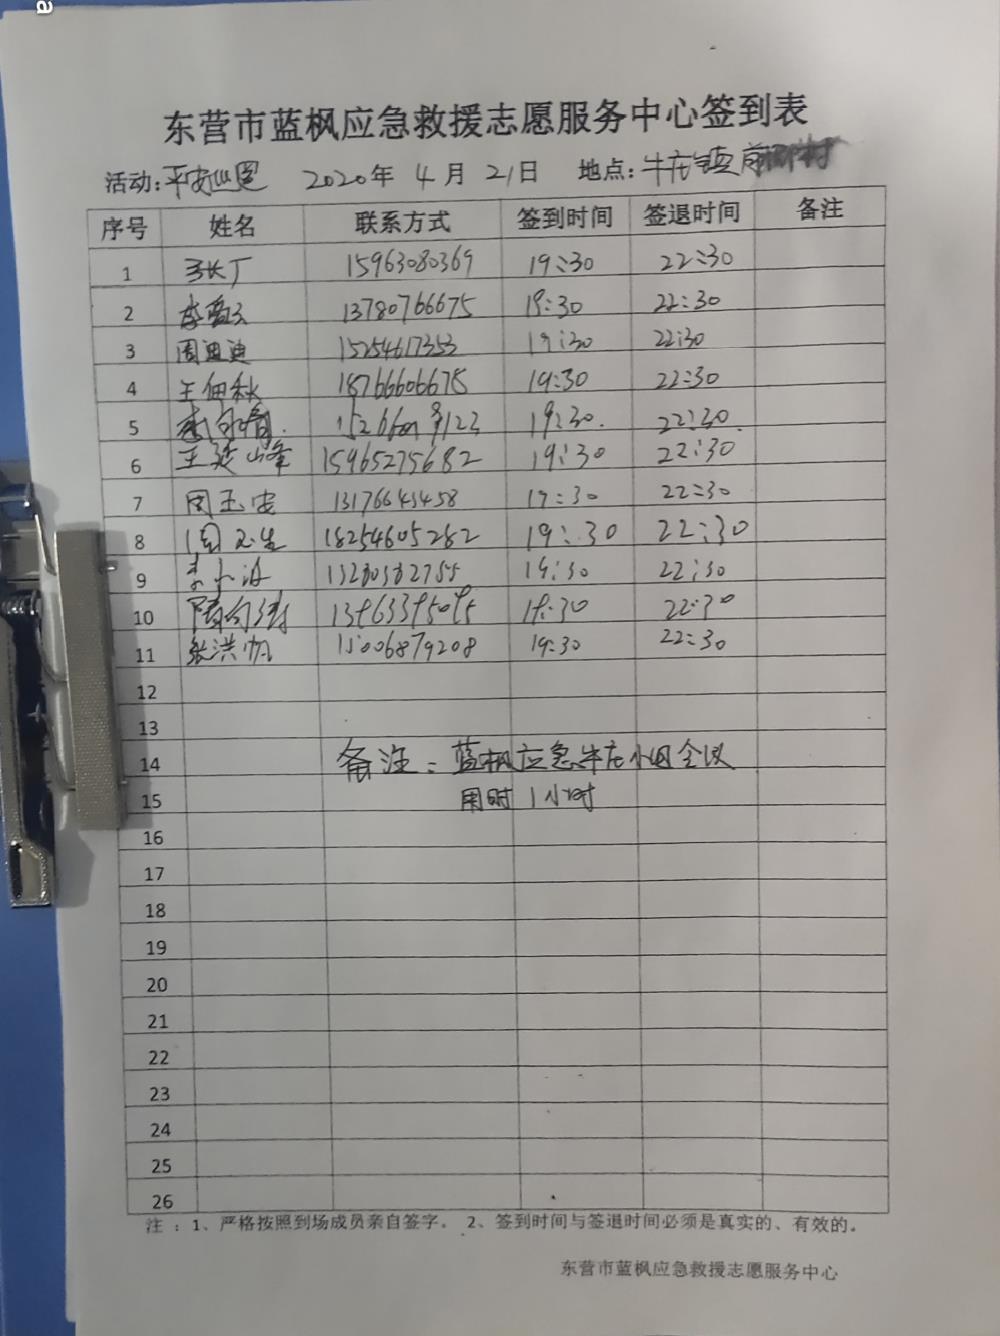 a
东营市蓝枫应急救援志愿服务中心签到表
活动:平安巡逻 2020年 4月 21日 地点:牛庄镇
序号 姓名 联系方式 签到时间 签退时间 备注
1 15963080369 19:30 22:30
2 13780766675 19:30 22:30
3 周迪迪 15254617353 19:30 22:30
4 王佃秋 18766606675 19:30 22:30
5 19:30. 22:30.
6 王延峰 15965275682 19:30 22:30
7 周玉安 13176643458 19:30 22:30
8 周玉生 18254605282 19:30 22:30
9 李小海 19:30 22:30
10 19:30 22:30
11 张洪帆 15006879208 19:30 22:30
12
13
14 备注:蓝枫应急牛庄小组会议
15 用时1小时
16
17
18
19
20
21
22
23
24
25
26
注:1、严格按照到场成员亲自签字。 2、签到时间与签退时间必须是真实的、有效的。
东营市蓝枫应急救援志愿服务中心